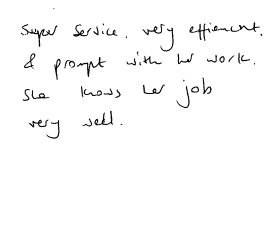 Super service, very effiencnt.
& prompt with her work.
She knows her job
very well.